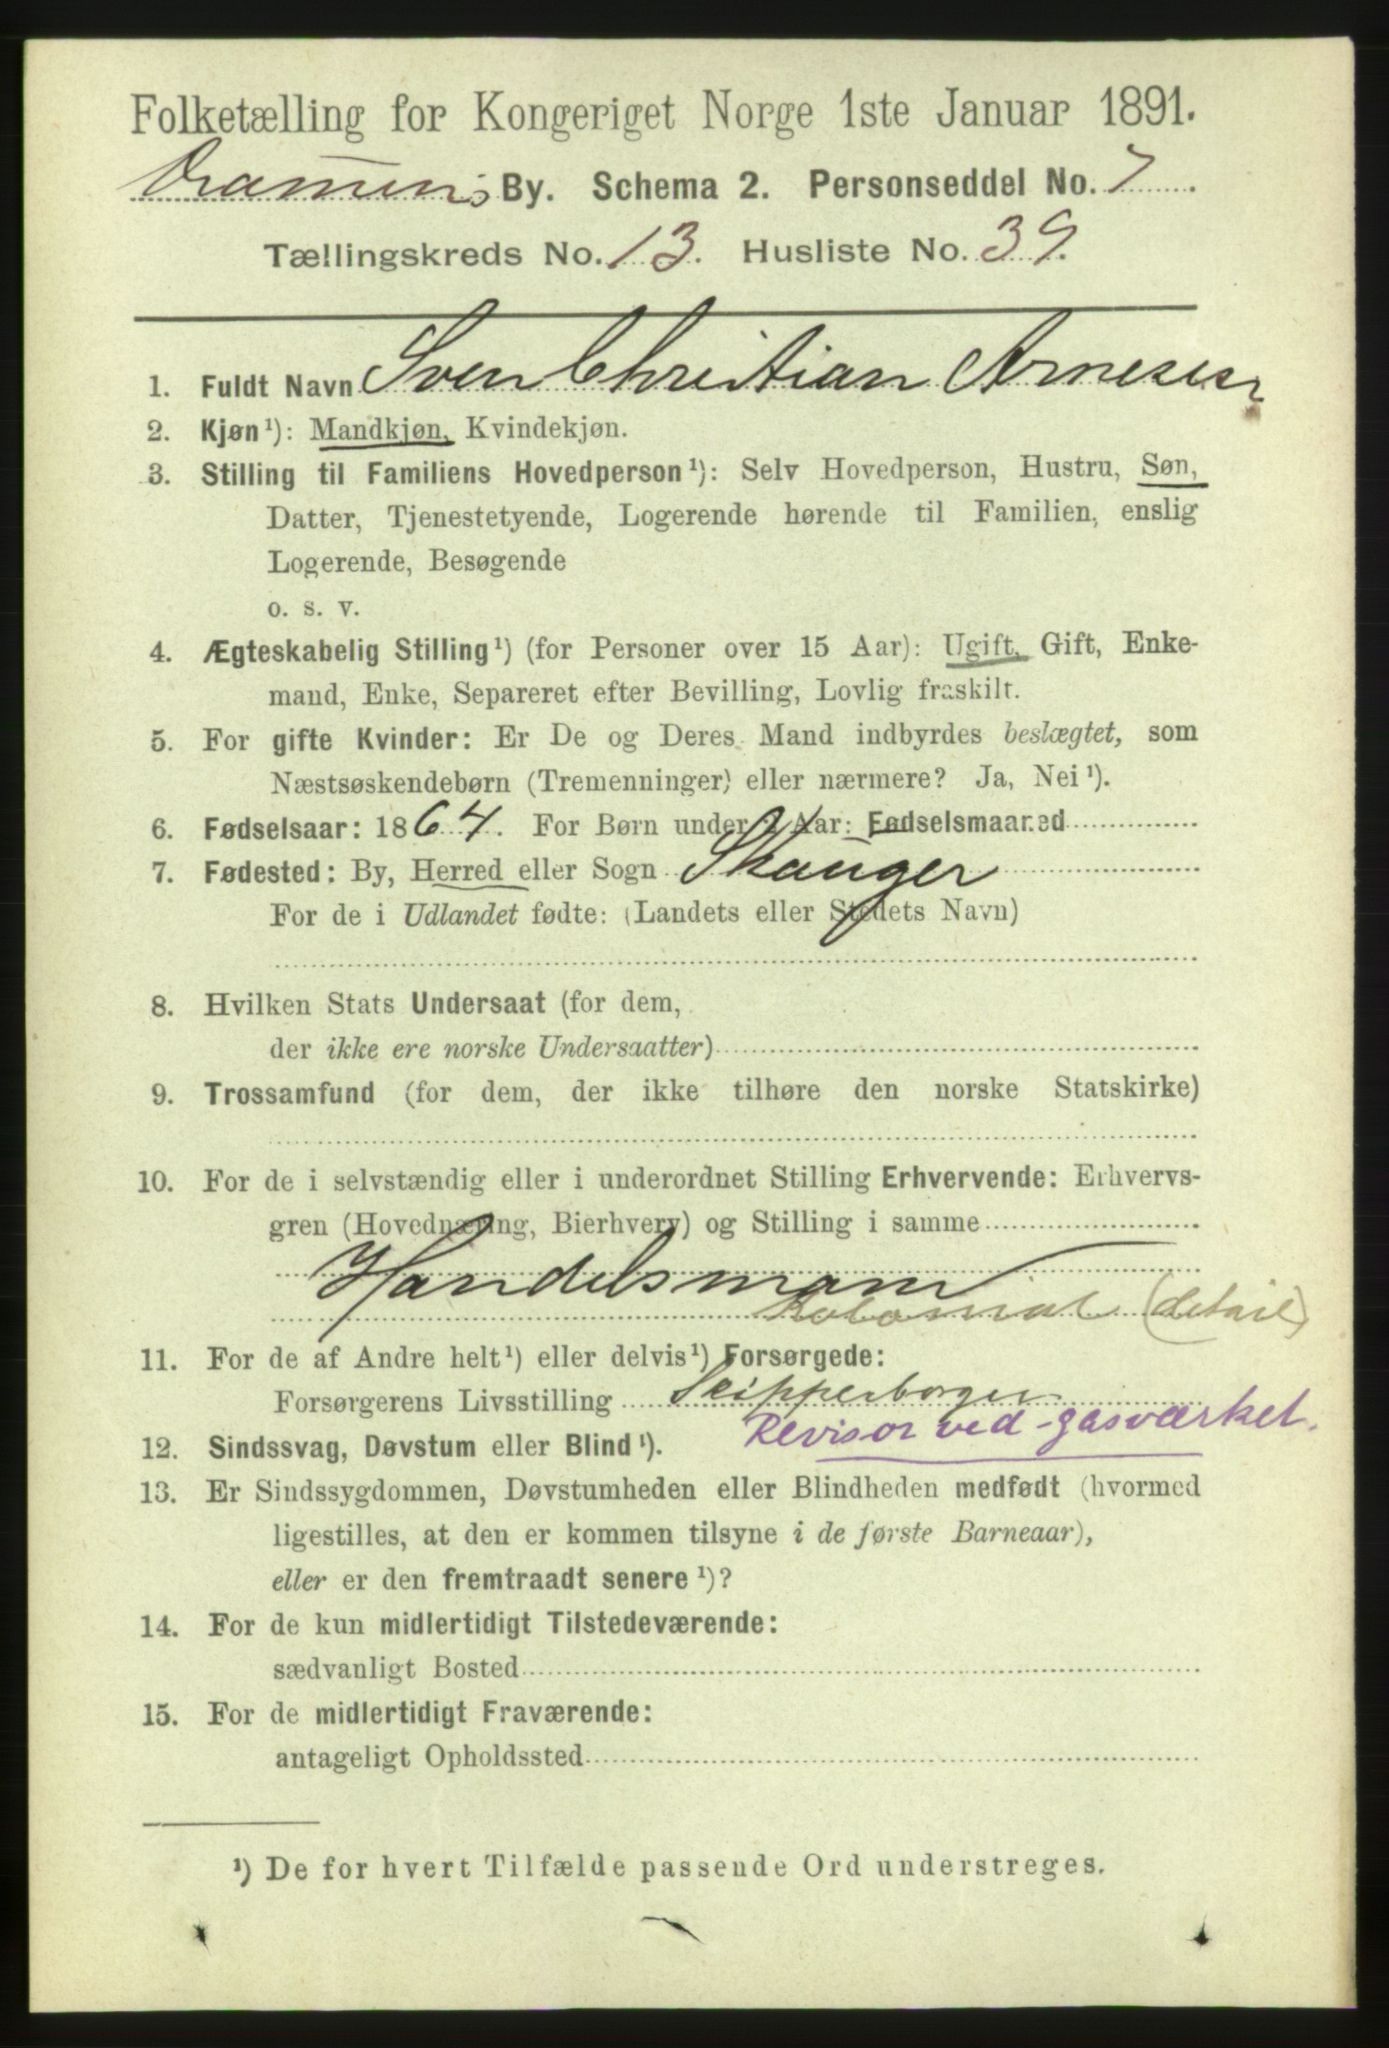 Folketælling for Kongeriget Norge 1ste Januar 1891.
Drammens By. Schema 2. Personseddel No. 7
Tællingskreds No. 13. Husliste No. 39.
1. Fuldt Navn Sven Christian Arnesen
2. Kjøn¹): Mandkjøn, Kvindekjøn.
3. Stilling til Familiens Hovedperson¹): Selv Hovedperson, Hustru, Søn,
Datter, Tjenestetyende, Logerende hørende til Familien, enslig
Logerende, Besøgende
o. s. v.
4. Ægteskabelig Stilling¹) (for Personer over 15 Aar): Ugift, Gift, Enke-
mand, Enke, Separeret efter Bevilling, Lovlig fraskilt.
5. For gifte Kvinder: Er De og Deres Mand indbyrdes beslægtet, som
Næstsøskendebørn (Tremenninger) eller nærmere? Ja, Nei¹).
6. Fødselsaar: 1864. For Børn under 2 Aar: Fødselsmaaned
7. Fødested: By, Herred eller Sogn Skauger
For de i Udlandet fødte: (Landets eller Stedets Navn)
8. Hvilken Stats Undersaat (for dem,
der ikke ere norske Undersaatter)
9. Trossamfund (for dem, der ikke tilhøre den norske Statskirke)
10. For de i selvstændig eller i underordnet Stilling Erhvervende: Erhvervs-
gren (Hovednæring, Bierhverv) og Stilling i samme
Handelsmann
Kolonial (detail)
11. For de af Andre helt¹) eller delvis¹) Forsørgede:
Forsørgerens Livsstilling Skipperborger
Revisor ved gasværket.
12. Sindssvag, Døvstum eller Blind¹).
13. Er Sindssygdommen, Døvstumheden eller Blindheden medfødt (hvormed
ligestilles, at den er kommen tilsyne i de første Barneaar),
eller er den fremtraadt senere¹)?
14. For de kun midlertidigt Tilstedeværende:
sædvanligt Bosted
15. For de midlertidigt Fraværende:
antageligt Opholdssted
¹) De for hvert Tilfælde passende Ord understreges.